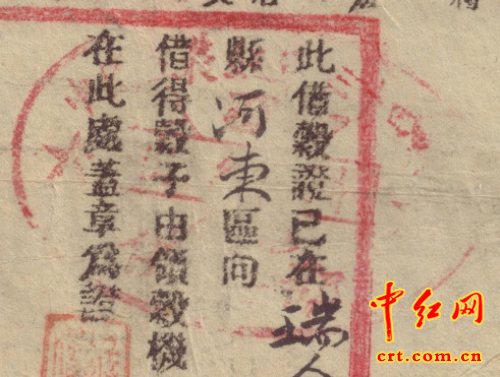 此借穀證已在瑞
縣河東區向
借得穀子由領穀機
在此處蓋章爲證
中红网
crt.com.cn